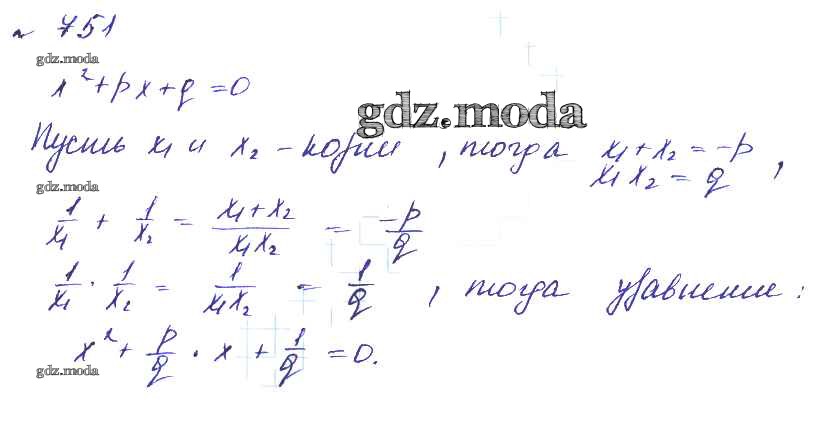 № 751
gdz.moda
x² + px + q = 0
gdz.moda
Пусть x₁ и x₂ - корни, тогда x₁ + x₂ = -p,
x₁ x₂ = q
gdz.moda
1/x₁ + 1/x₂ = (x₁ + x₂)/(x₁ x₂) = -p/q
1/x₁ · 1/x₂ = 1/(x₁ x₂) = 1/q, тогда уравнение:
x² + p/q · x + 1/q = 0.
gdz.moda